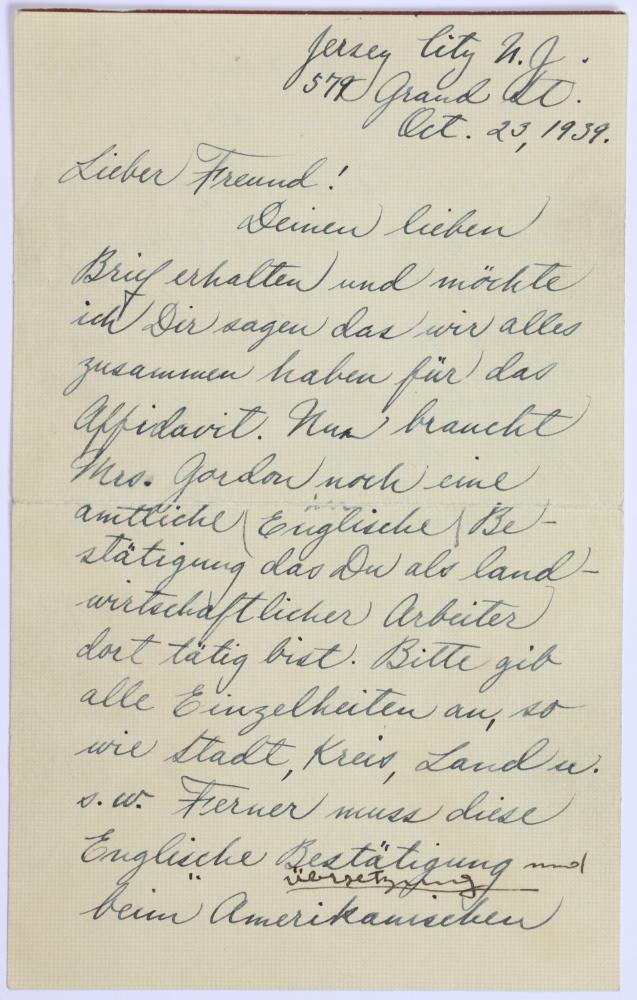 Jersey City N. J.
579 Grand St.
Oct. 23, 1939.
Lieber Freund!
Deinen lieben
Brief erhalten und möchte
ich Dir sagen das wir alles
zusammen haben für das
Affidavit. Nun braucht
Mrs. Gordon noch eine
amtliche (Englische) Be-
stätigung das Du als land-
wirtschaftlicher Arbeiter
dort tätig bist. Bitte gib
alle Einzelheiten an, so
wie Stadt, Kreis, Land u.
s. w. Ferner muss diese
Englische Bestätigung und
Übersetzung
beim Amerikanischen